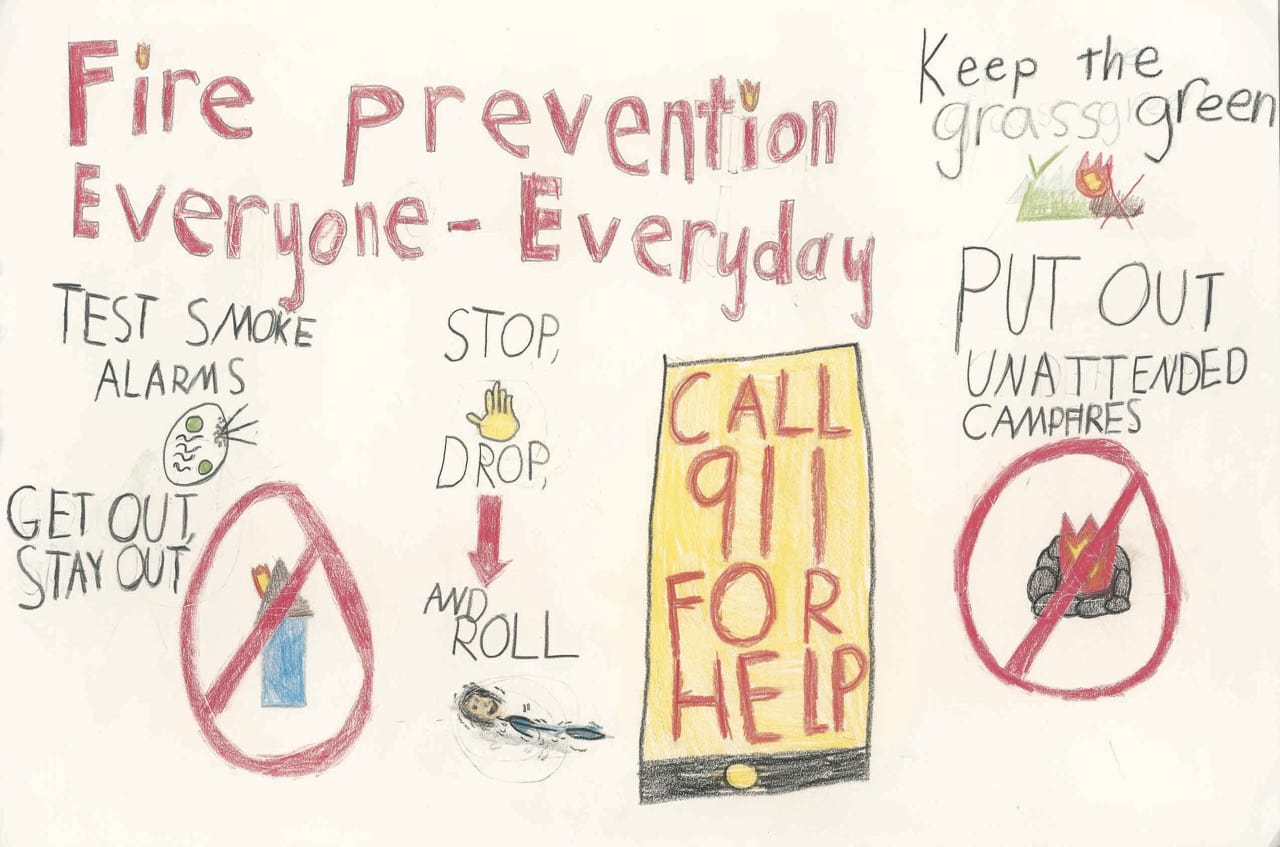 Fire prevention
Everyone - Everyday
Keep the
grass green
TEST SMOKE
ALARMS
GET OUT,
STAY OUT
STOP,
DROP,
AND
ROLL
CALL
911
FOR
HELP
PUT OUT
UNATTENDED
CAMPFIRES